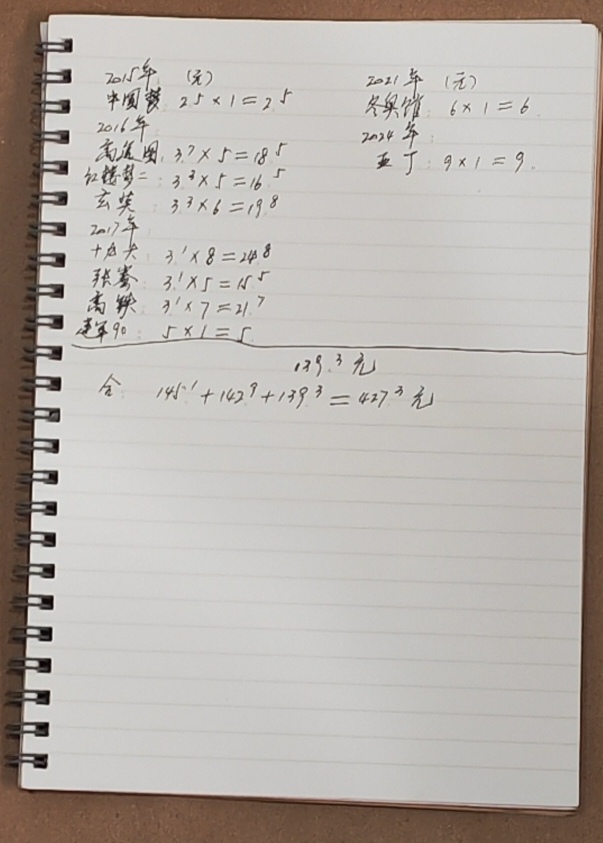 2015年 (元)
中国梦: 2.5 × 1 = 2.5
2016年
高逸图: 3.7 × 5 = 18.5
红楼梦二: 3.3 × 5 = 16.5
玄奘: 3.3 × 6 = 19.8
2017年
3.1 × 8 = 24.8
张骞: 3.1 × 5 = 15.5
高铁: 3.1 × 7 = 21.7
建军90: 5 × 1 = 5.
2021年 (元)
冬奥馆: 6 × 1 = 6.
2024年:
亚丁: 9 × 1 = 9.
139.3元
合: 145.1 + 142.9 + 139.3 = 427.3元